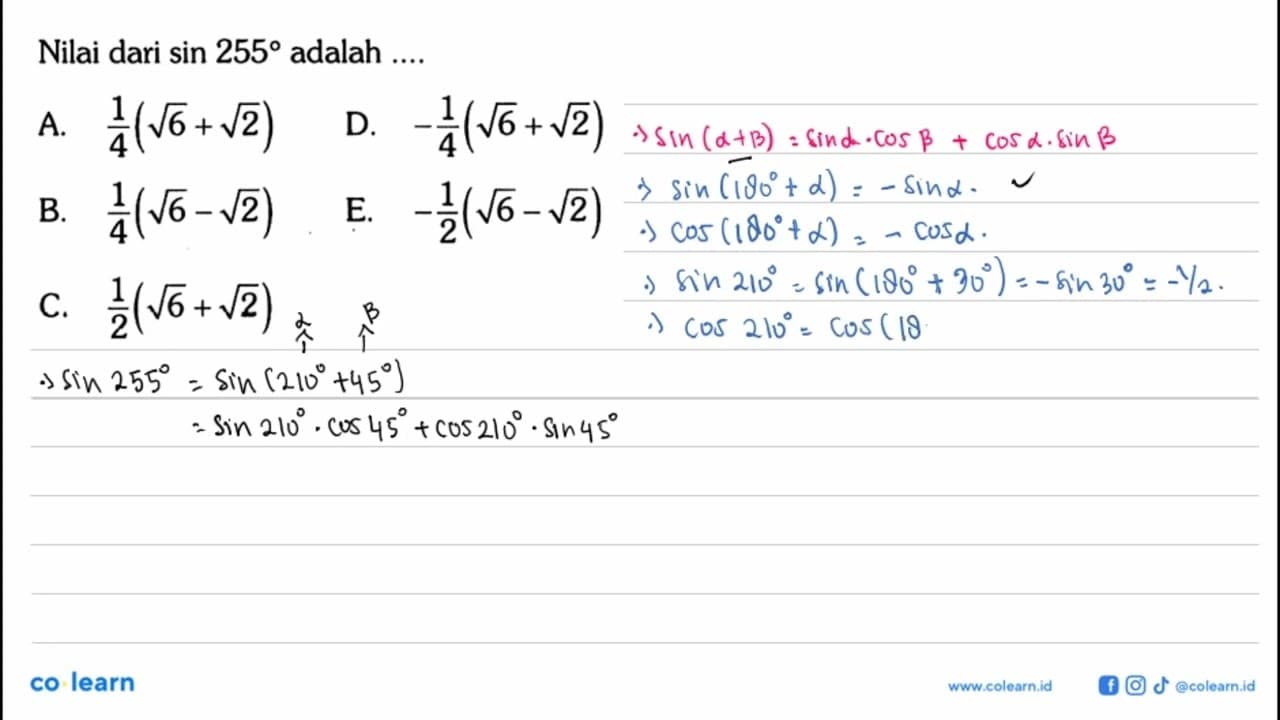 Nilai dari sin 255° adalah ....
A. 1/4(√6 + √2) D. -1/4(√6 + √2)
B. 1/4(√6 - √2) E. -1/2(√6 - √2)
C. 1/2(√6 + √2)
·) sin (α+β) = sin α · cos β + cos α · sin β
·) sin (180° + α) = - sin α. ✓
·) cos (180° + α) = - cos α.
·) sin 210° = sin (180° + 30°) = - sin 30° = -1/2.
·) cos 210° = cos (18
α β
·) sin 255° = sin (210° + 45°)
= sin 210° · cos 45° + cos 210° · sin 45°
co learn
www.colearn.id @colearn.id